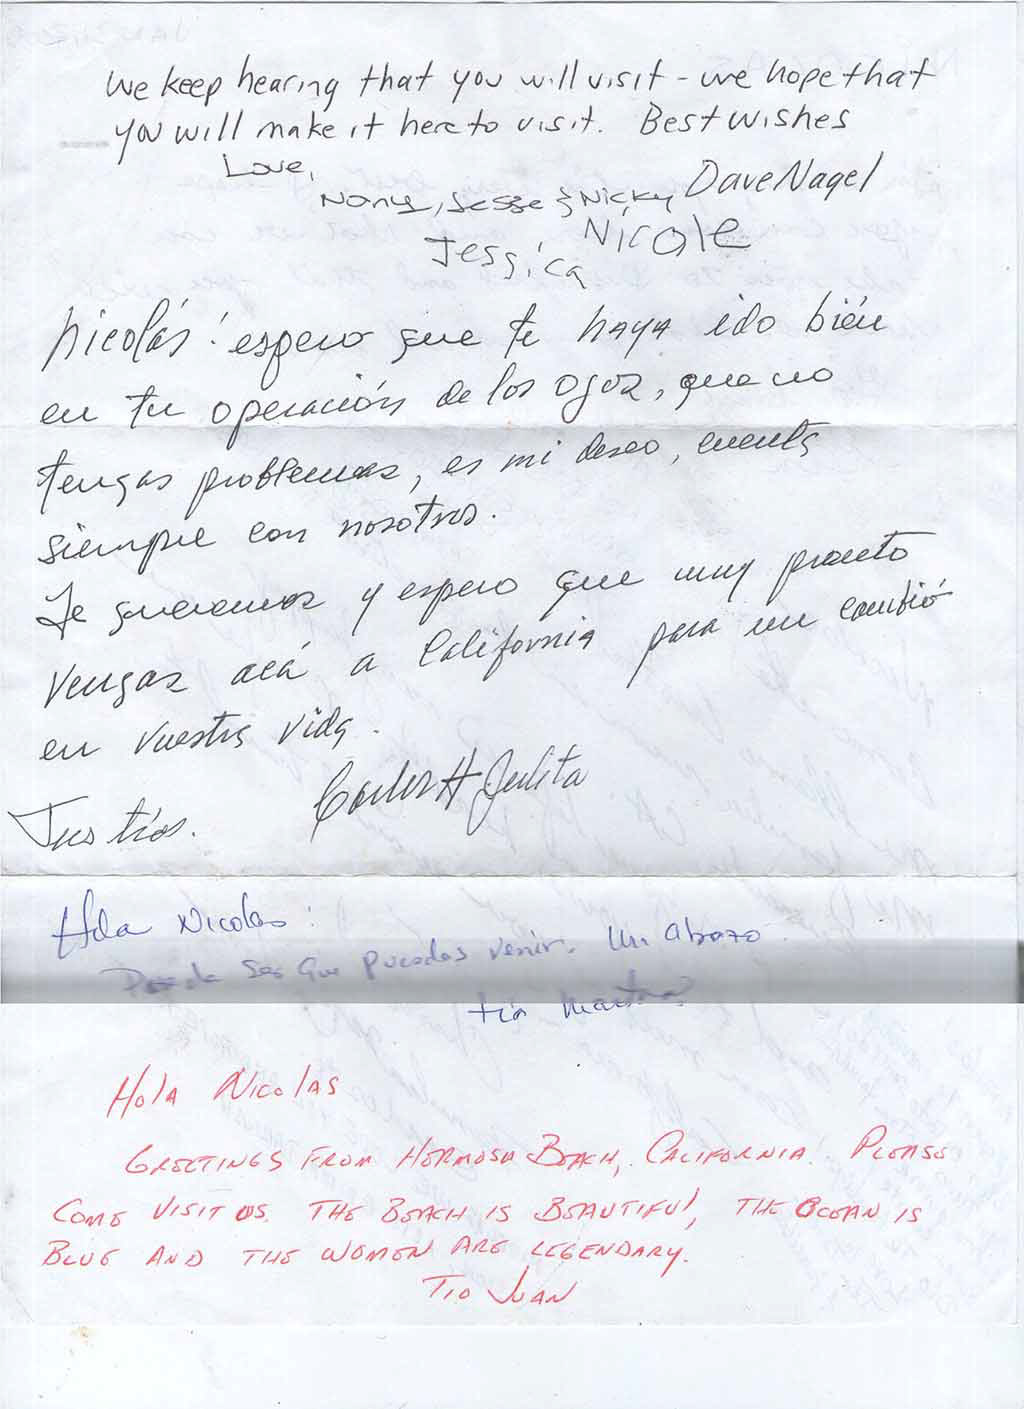 We keep hearing that you will visit - we hope that
you will make it here to visit. Best wishes
Love,
Nany, Jesse & Nicky Dave Nagel
Jessica Nicole
Nicolás! espero que te haya ido bién
en tu operación de los ojos, que no
tengas problemas, es mi deseo, cuenta
siempre con nosotros.
Te queremos y espero que muy pronto
vengas acá a California para un cambió
en vuestra vida.
Carlos H Julita
Tus tíos.
Hola Nicolas:
que puedas venir. Un abrazo.
tía Martha
Hola Nicolas
GREETINGS FROM HERMOSA BEACH, CALIFORNIA. PLEASE
COME VISIT US. THE BEACH IS BEAUTIFUL, THE OCEAN IS
BLUE AND THE WOMEN ARE LEGENDARY.
TIO JUAN